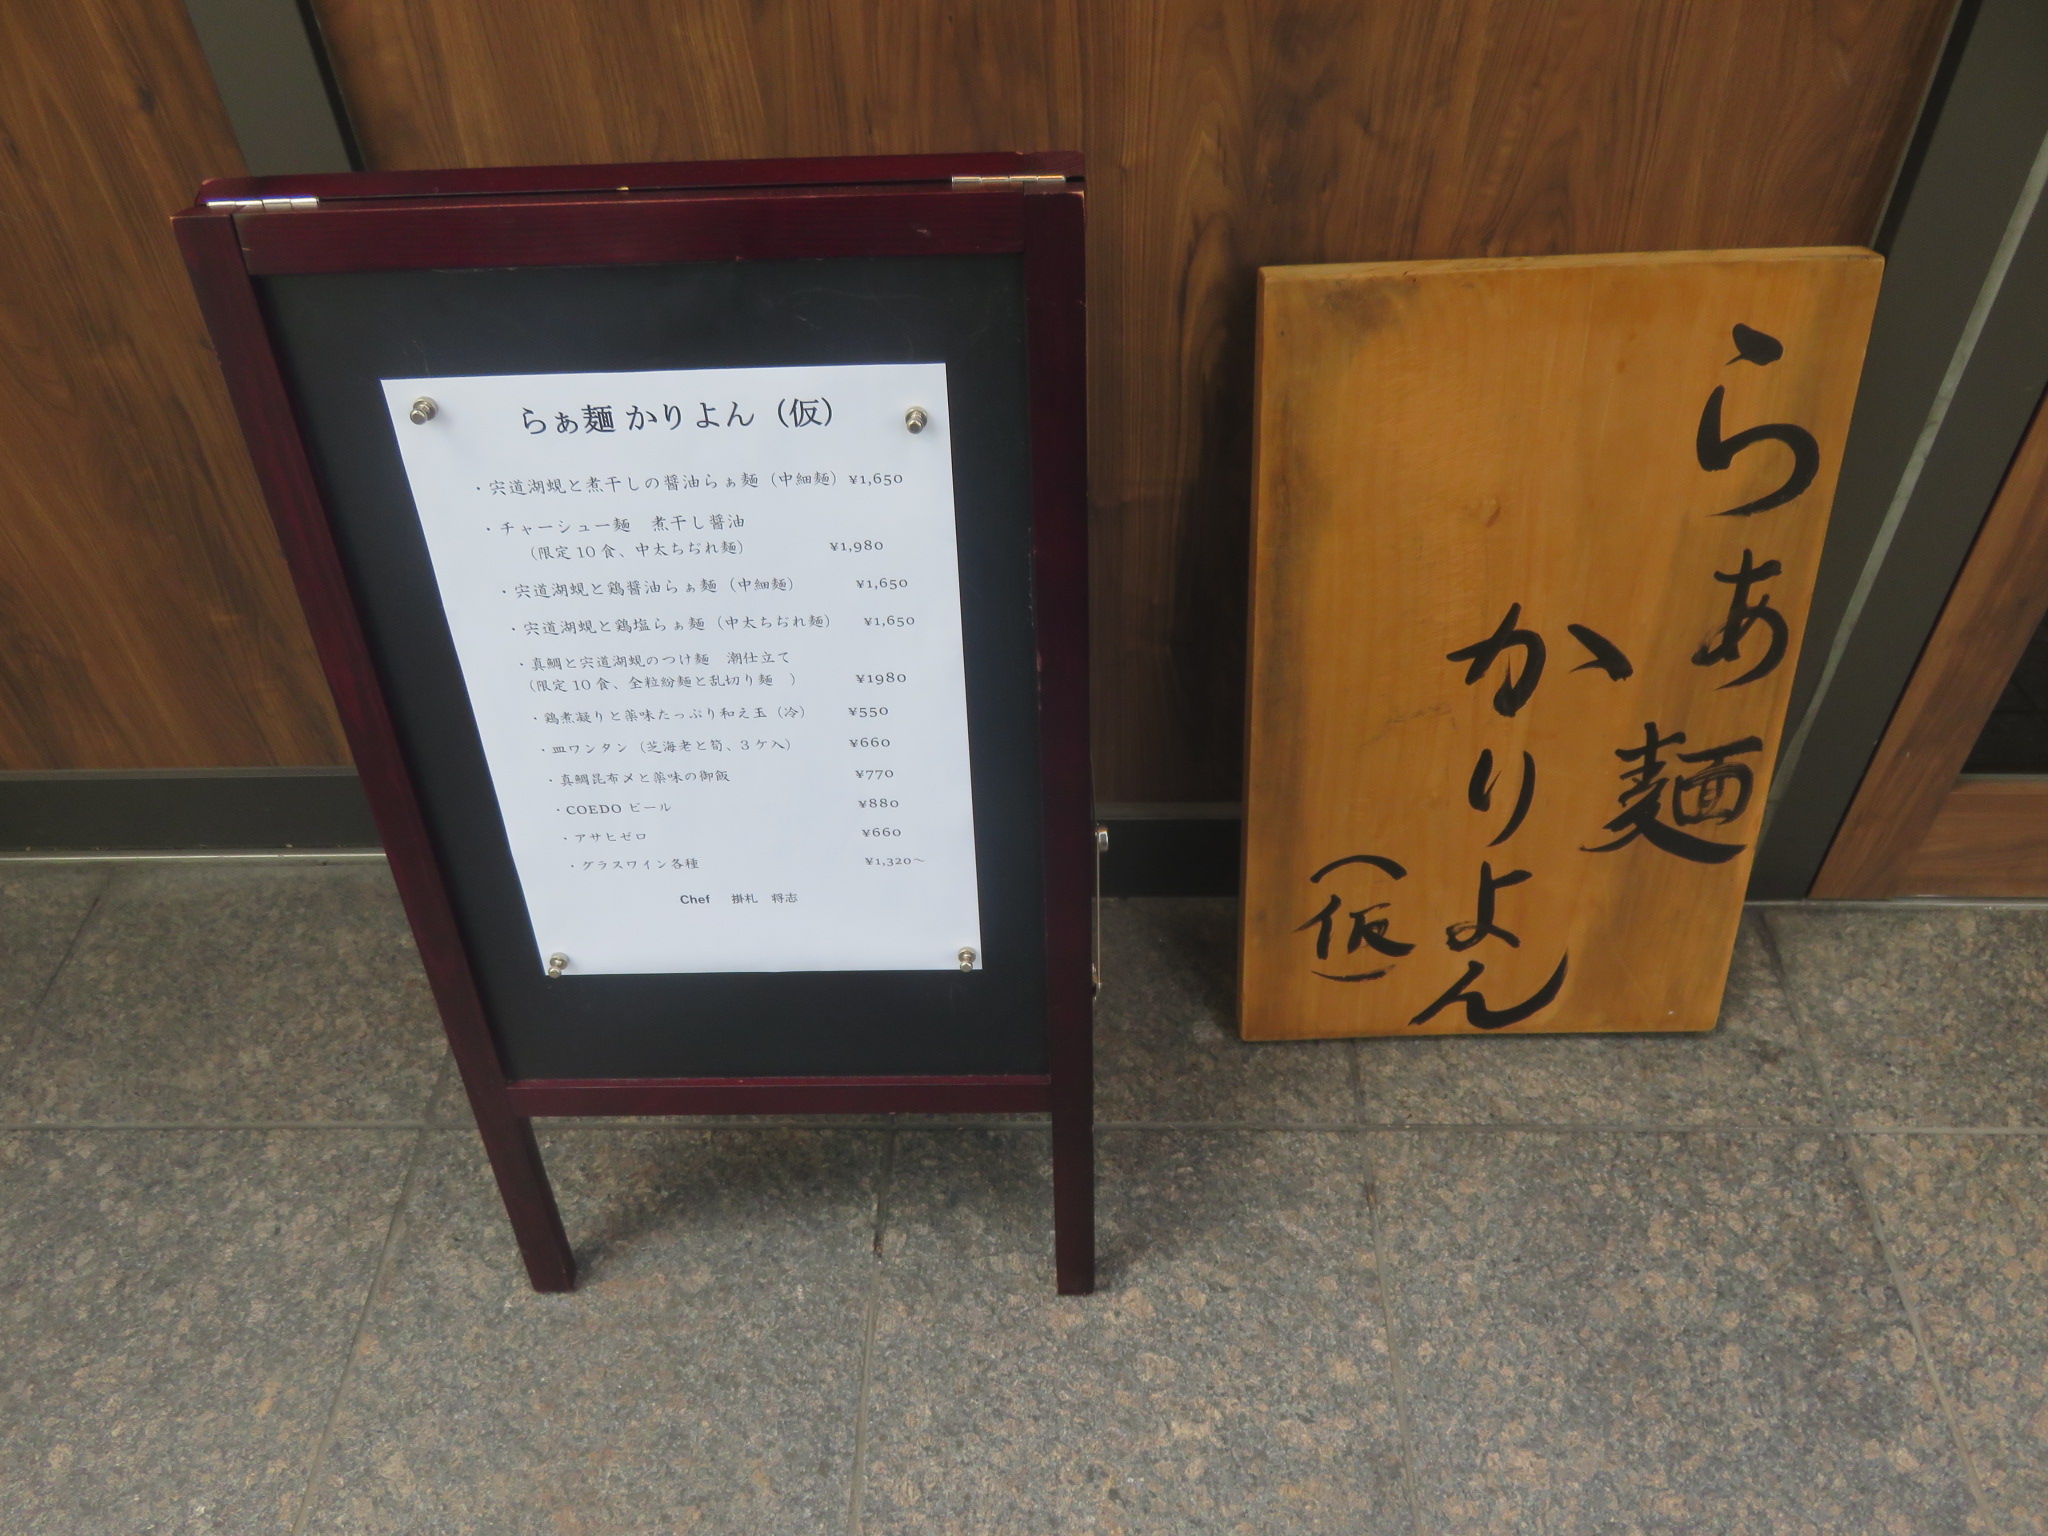 らぁ麺 かりよん（仮）
・宍道湖蜆と煮干しの醤油らぁ麺（中細麺） ¥1,650
・チャーシュー麺　煮干し醤油
（限定10食、中太ちぢれ麺） ¥1,980
・宍道湖蜆と鶏醤油らぁ麺（中細麺） ¥1,650
・宍道湖蜆と鶏塩らぁ麺（中太ちぢれ麺） ¥1,650
・真鯛と宍道湖蜆のつけ麺　潮仕立て
（限定10食、全粒紛麺と乱切り麺　） ¥1980
・鶏煮凝りと薬味たっぷり和え玉（冷） ¥550
・皿ワンタン（芝海老と筍、3ケ入） ¥660
・真鯛昆布〆と薬味の御飯 ¥770
・COEDO ビール ¥880
・アサヒゼロ ¥660
・グラスワイン各種 ¥1,320～
Chef　掛札　将志
らぁ麺
かりよん
（仮）